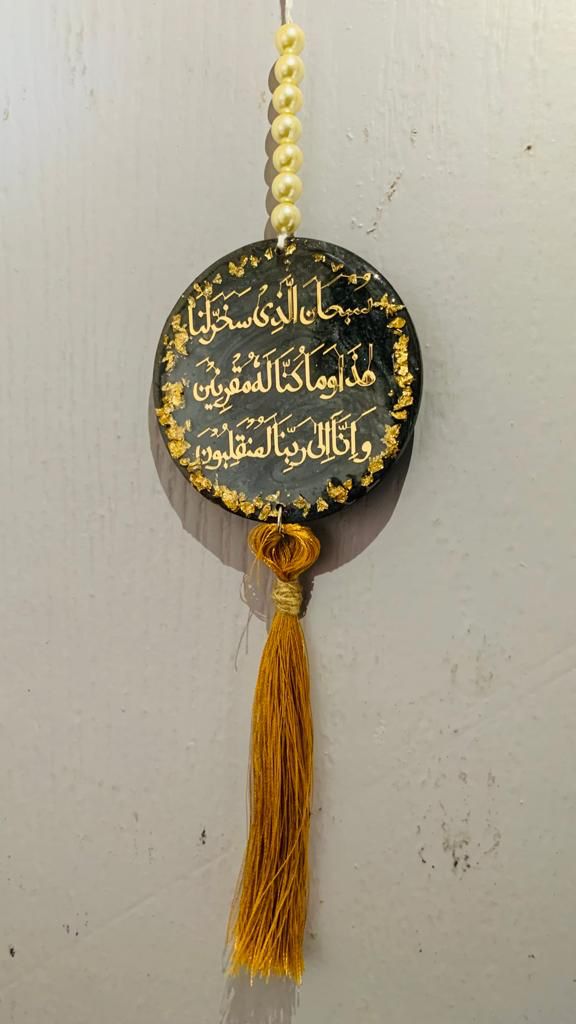 سُبْحَانَ الَّذِي سَخَّرَ لَنَا
هٰذَا وَمَا كُنَّا لَهُ مُقْرِنِينَ
وَإِنَّا إِلَىٰ رَبِّنَا لَمُنْقَلِبُونَ